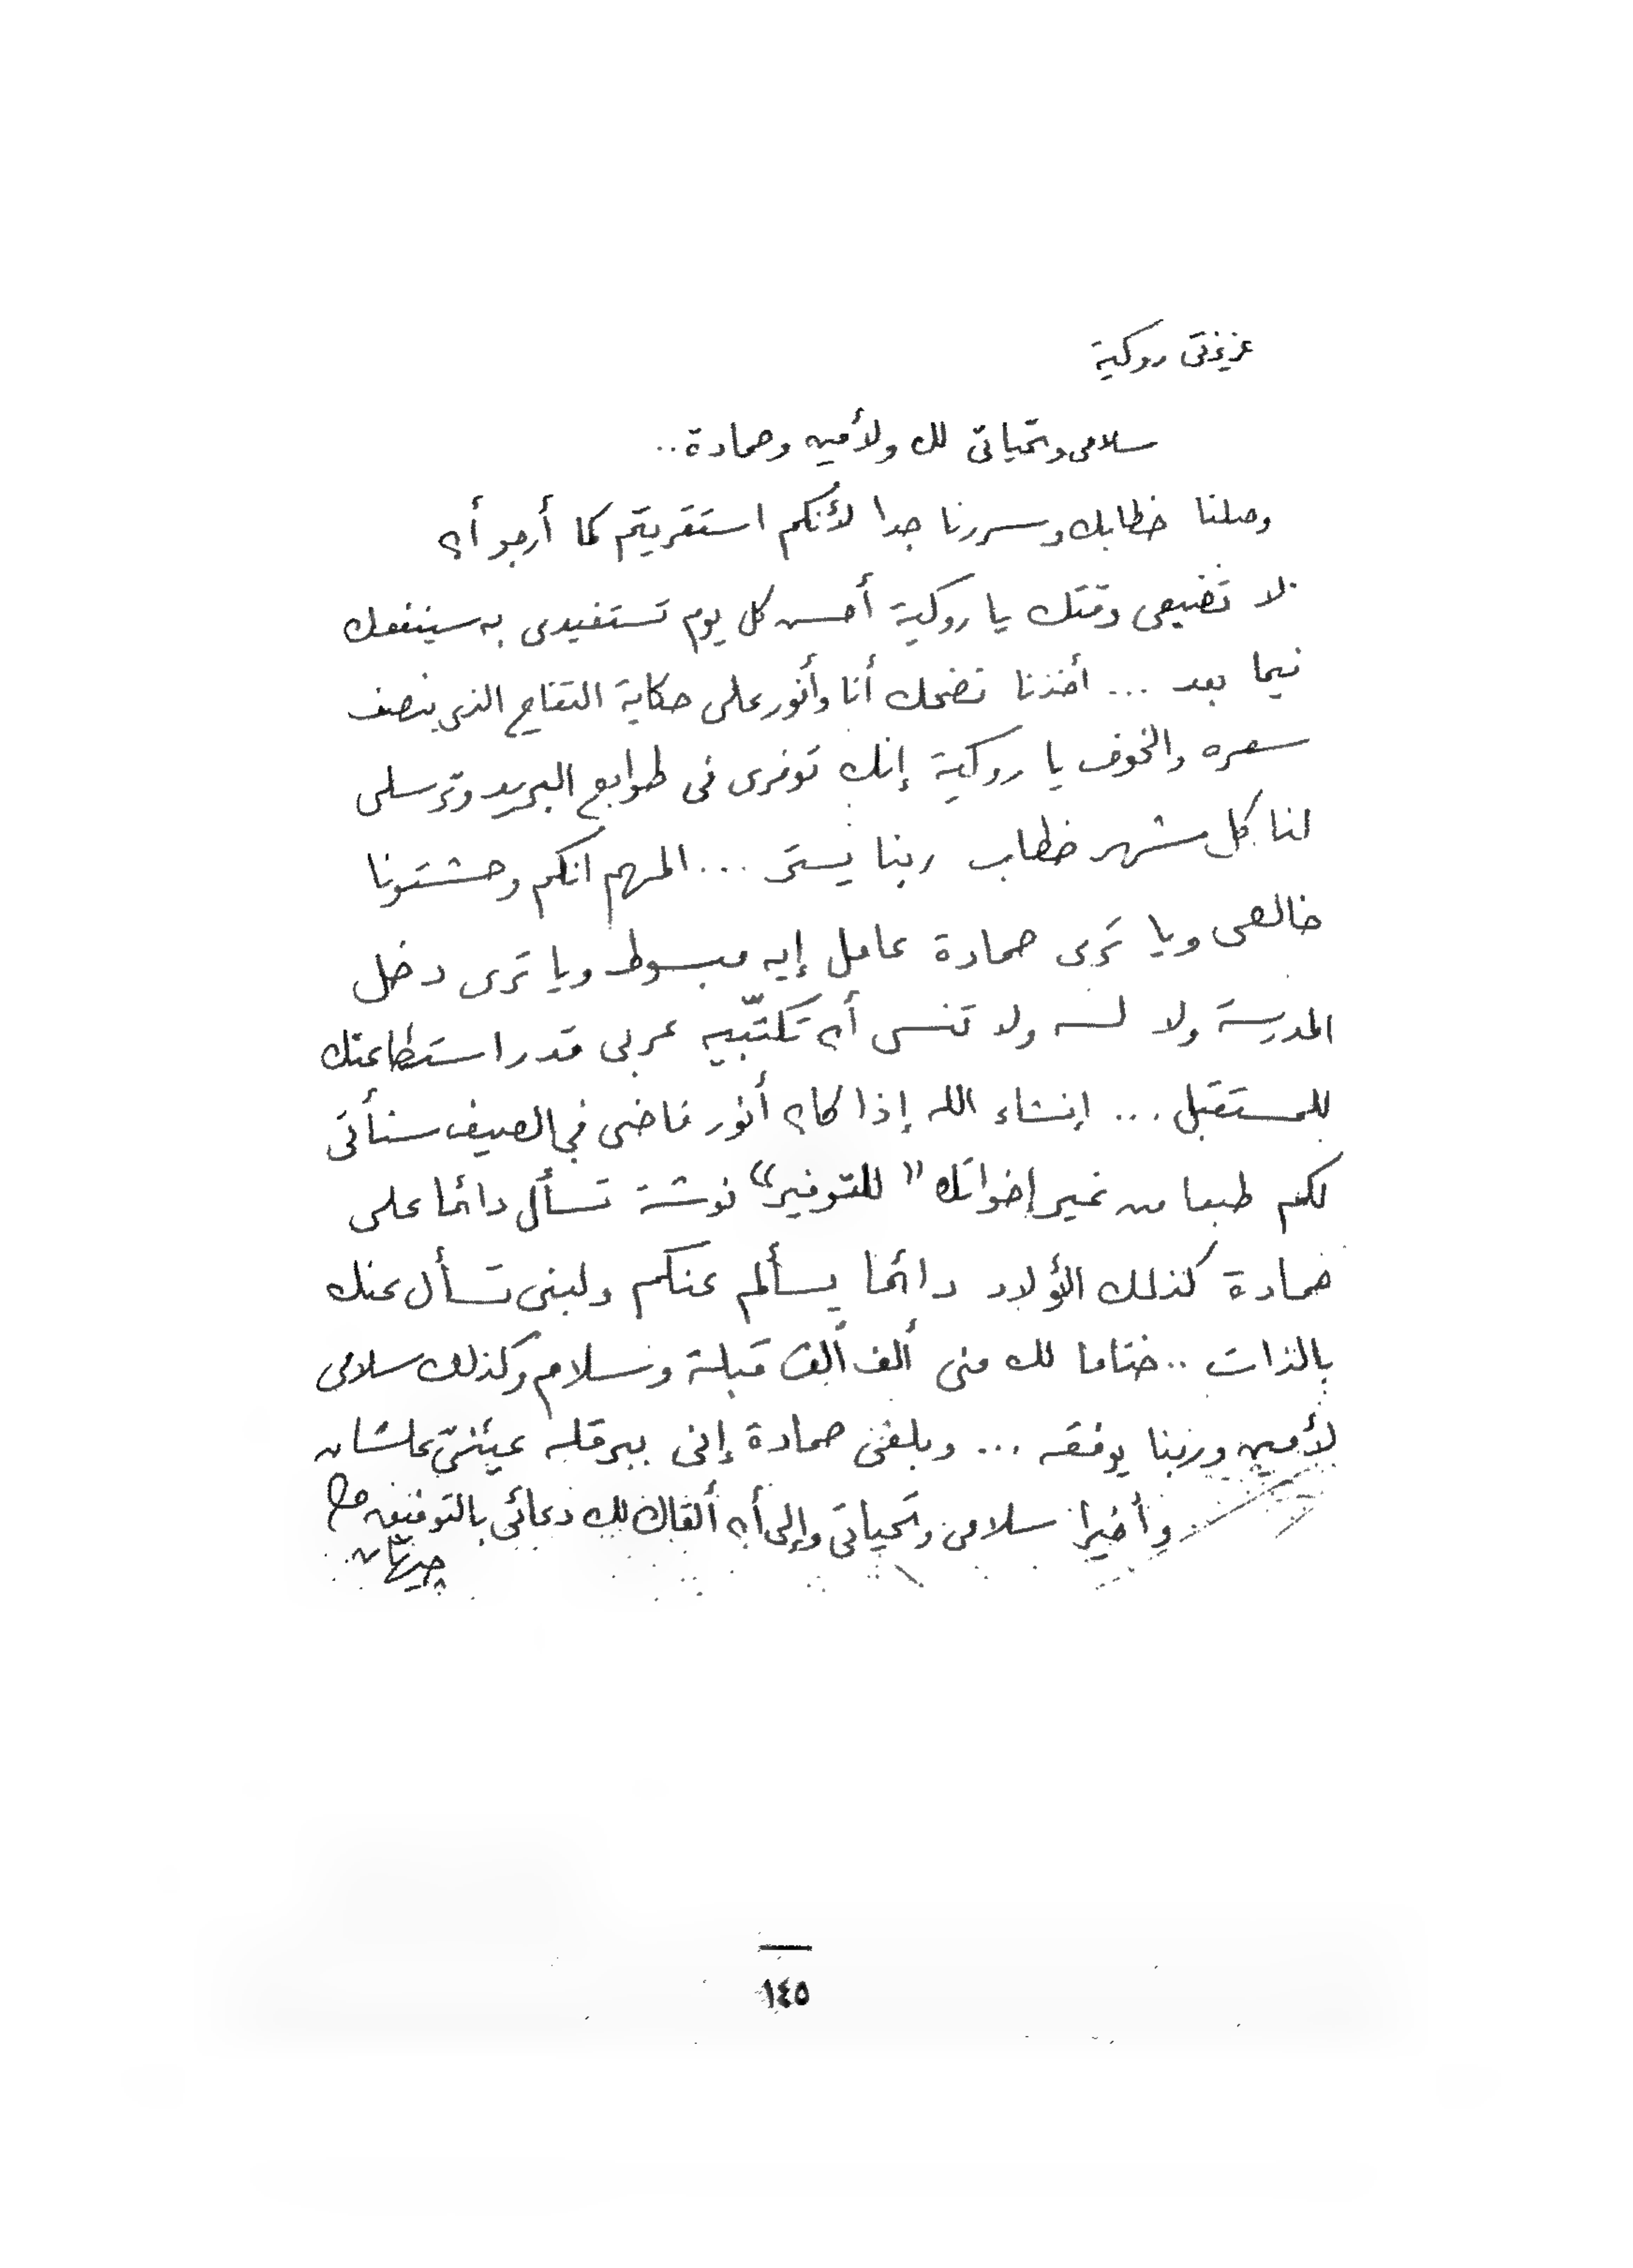 عزيزتى روكية
سلامى وتحياتى لك ولأمين وحمادة..
وصلنا خطابك وسررنا جدا لأنكم استقريتم كما أرجو أن
لا تضيعى وقتك يا روكية أحسن كل يوم تستفيدى به سينفعك
فيما بعد ... أخذنا نضحك أنا وأنور على حكاية التفاح الذى بنصف
سعره والخوف يا روكية إنك توفرى فى طوابع البريد وترسلى
لنا كل شهر خطاب ربنا يستر ... المهم انكم وحشتونا
خالص ويا ترى حمادة عامل إيه مبسوط ويا ترى دخل
المدرسة ولا لسه ولا تنسى أن تكتبيه عربى قدر استطاعتك
للمستقبل ... إنشاء الله إذا كان أنور فاضى فى الصيف سنأتى
لكم طبعا من غير إخواتك "للتوفير" نوشة تسأل دائما على
حمادة كذلك الأولاد دائما يسألم عنكم ولبنى تسأل عنك
بالذات .. ختاما لك منى ألف ألف قبلة وسلام وكذلك سلامى
لأمين وربنا يوفقه ... وبلغى حمادة إنى علشان
وأخيرا سلامى وتحياتى وإلى أن ألقاك لك دعائى بالتوفيق
جيهان
١٤٥